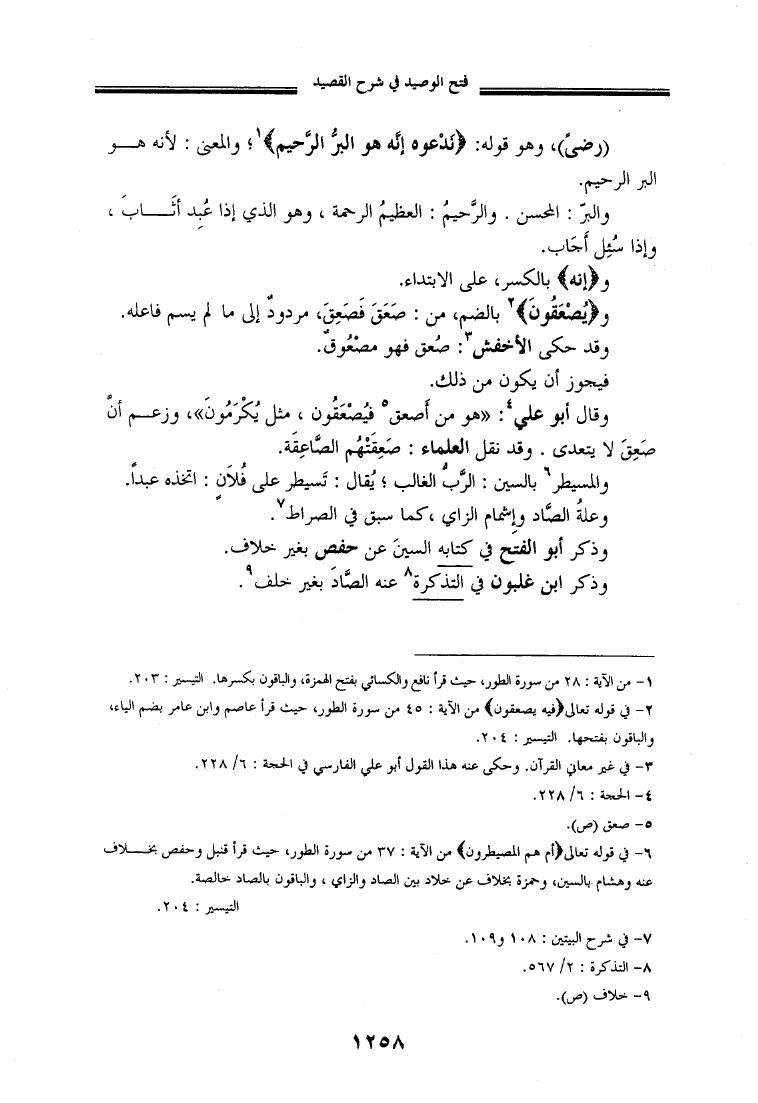 فتح الوصيد في شرح القصيد
(رضىً)، وهو قوله: ﴿نَدْعوه إنَّه هو البرُّ الرَّحيم﴾¹؛ والمعنى : لأنه هــو
البر الرحيم.
والبرّ : المحسن . والرَّحيمُ : العظيمُ الرحمة ، وهو الذي إذا عُبِد أثَــابَ ،
وإذا سُئِل أَجَاب.
و﴿إنه﴾ بالكسر، على الابتداء.
و﴿يُصْعَقُونَ﴾² بالضم، من : صَعَقَ فَصَعِقَ، مردودٌ إلى ما لم يسم فاعله.
وقد حكى الأخفش³: صُعق فهو مصْعُوقٌ.
فيجوز أن يكون من ذلك.
وقال أبو علي⁴: «هو من أصعق⁵ فيُصْعَقُون ، مثل يُكْرَمُونَ»، وزعــم أنَّ
صَعِقَ لا يتعدى . وقد نقل العلماء : صَعِقَتْهُم الصَّاعِقَة.
والمسيطر⁶ بالسين : الرَّبُّ الغالب ؛ يُقال : تَسيطر على فُلاَنٍ : اتخذه عبداً.
وعلةُ الصَّاد وإشمام الزاي ،كما سبق في الصراط⁷.
وذكر أبو الفتح في كتابه السينَ عن حفص بغير خلاف.
وذكر ابن غلبون في التذكرة⁸ عنه الصَّادَ بغير خلف⁹.
١- من الآية : ٢٨ من سورة الطور، حيث قرأ نافع والكسائي بفتح الهمزة، والباقون بكسرها. التيسير : ٢٠٣.
٢- في قوله تعالى﴿فيه يصعقون﴾ من الآية : ٤٥ من سورة الطور، حيث قرأ عاصم وابن عامر بضم الياء،
والباقون بفتحها. التيسير : ٢٠٤.
٣- في غير معاني القرآن. وحكى عنه هذا القول أبو علي الفارسي في الحجة : ٦/ ٢٢٨.
٤- الحجة : ٦/ ٢٢٨.
٥- صعق (ص).
٦- في قوله تعالى﴿أم هم المصيطرون﴾ من الآية : ٣٧ من سورة الطور، حيث قرأ قنبل وحفص بخــلاف
عنه وهشام بالسين، وحمزة بخلاف عن خلاد بين الصاد والزاي ، والباقون بالصاد خالصة.
التيسير : ٢٠٤.
٧- في شرح البيتين : ١٠٨ و١٠٩.
٨- التذكرة : ٢/ ٥٦٧.
٩- خلاف (ص).
١٢٥٨